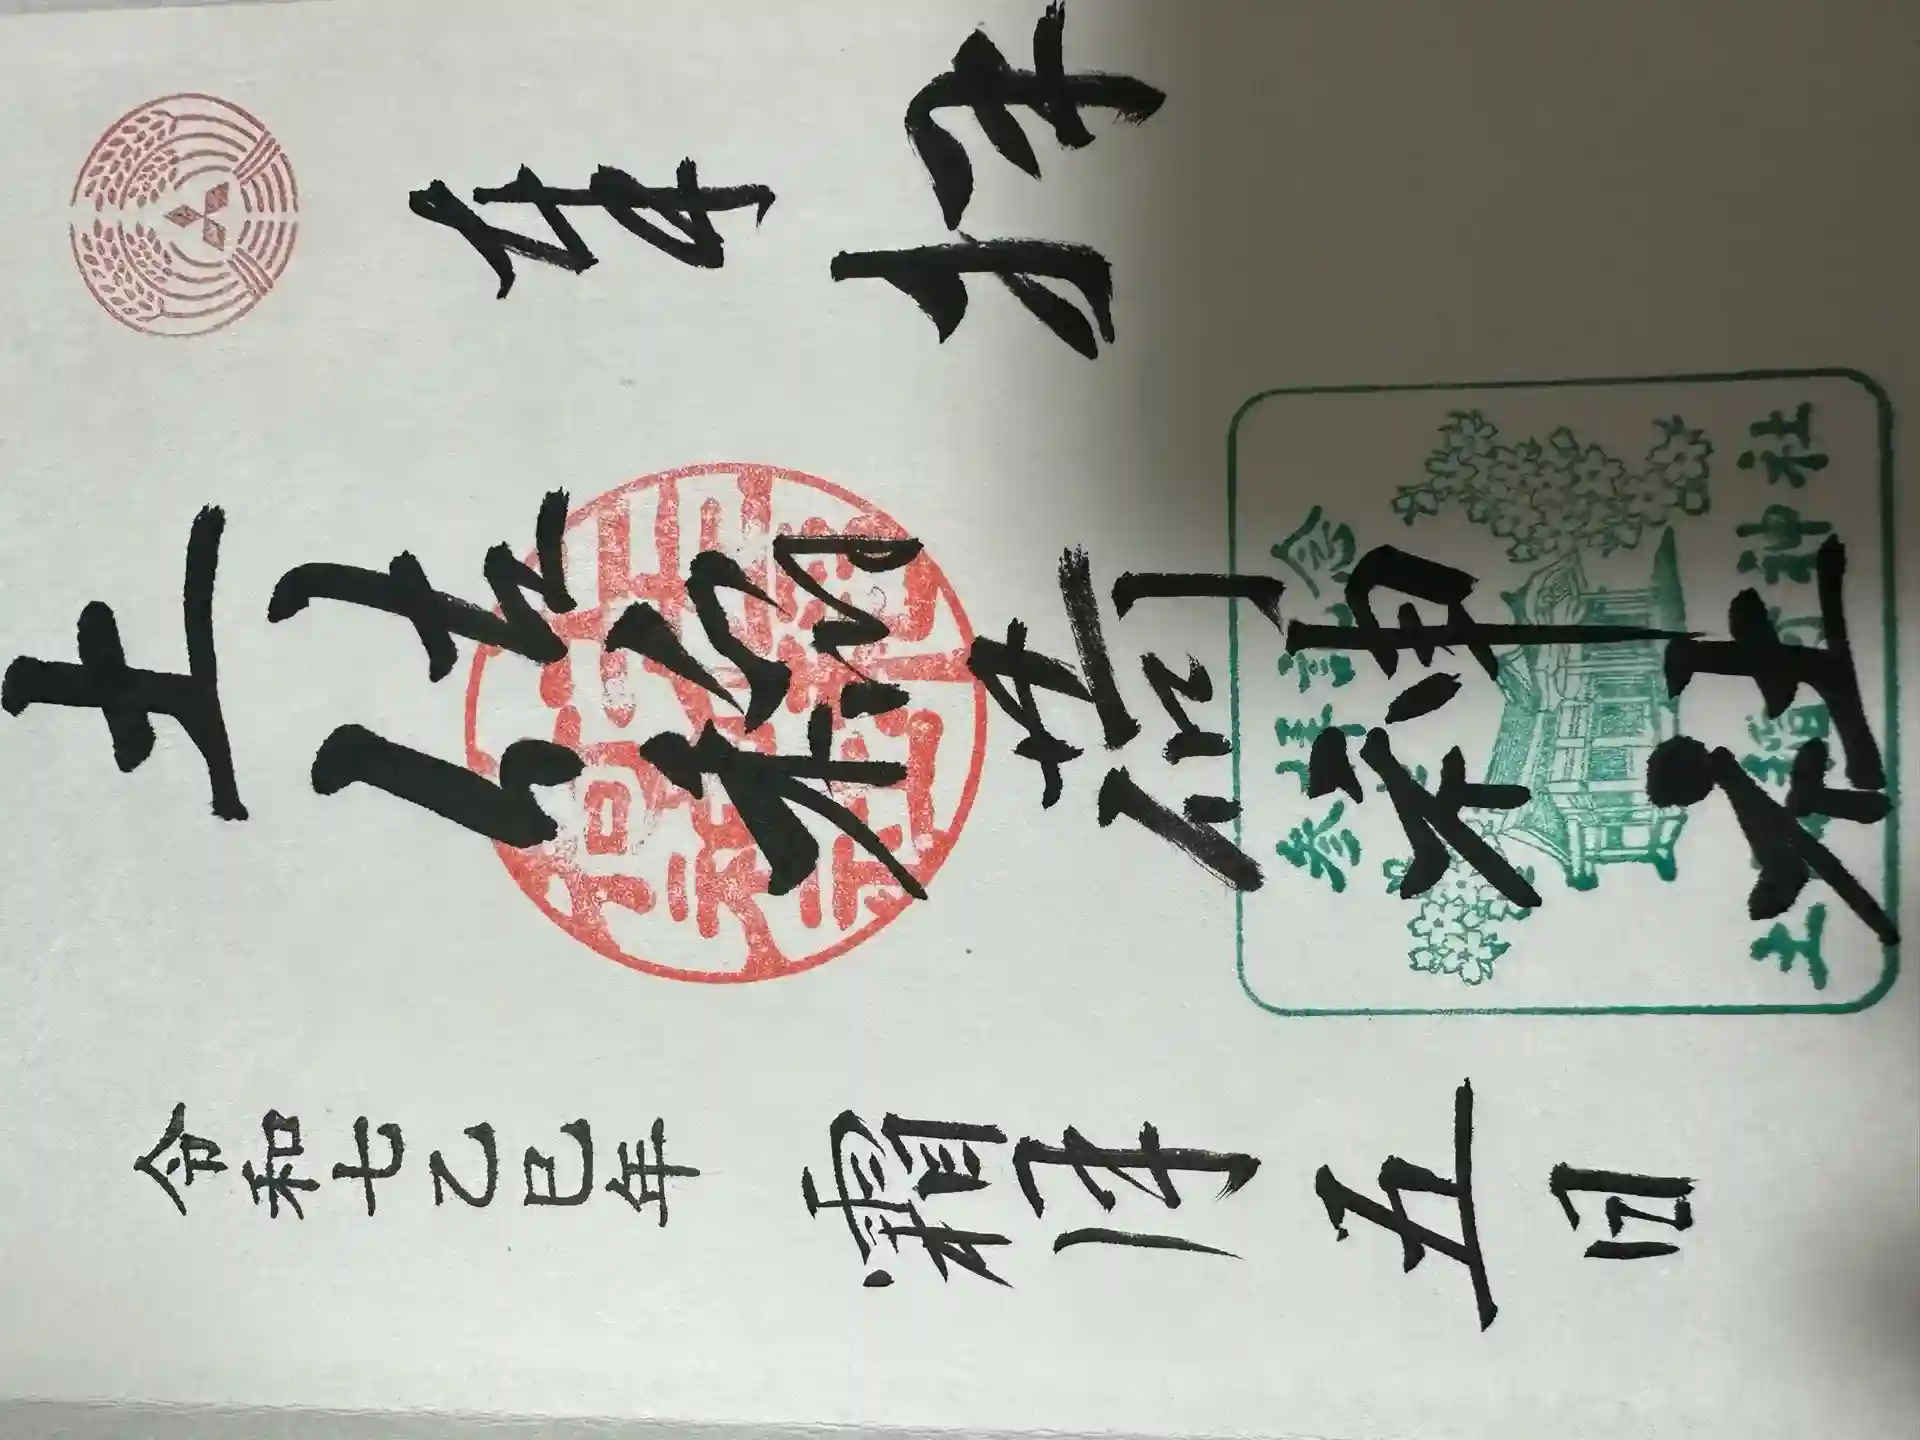 奉拝
土佐稲荷神社
参拝記念
土佐稲荷神社
令和七乙巳年 霜月五日